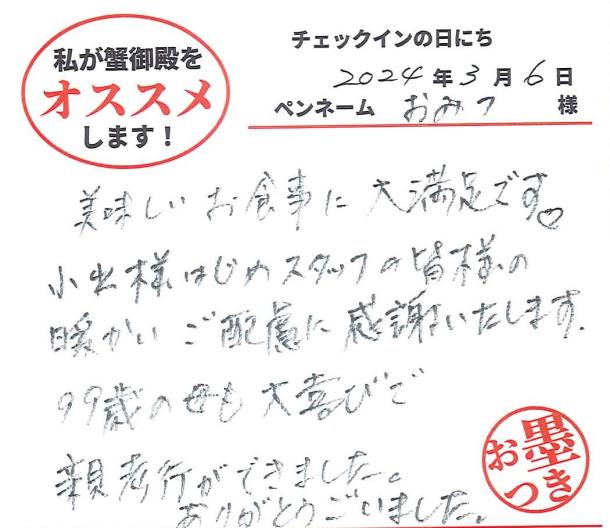 私が蟹御殿を
オススメ
します！
チェックインの日にち
2024年3月6日
ペンネーム おみつ 様
美味しいお食事に大満足です♡
小出様はじめスタッフの皆様の
暖かいご配慮に感謝いたします。
99歳の母も大喜びで
親孝行ができました。
ありがとうございました。
お墨つき